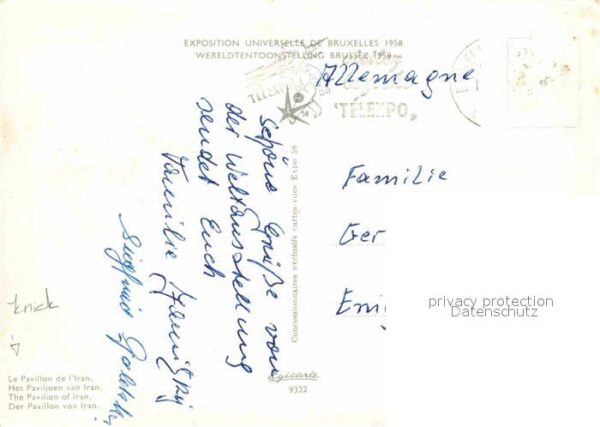 EXPOSITION UNIVERSELLE DE BRUXELLES 1958
WERELDTENTOONSTELLING BRUSSEL 1958
"TÉLEXPO"
Allemagne
Familie
Ger
Eni
privacy protection
Datenschutz
schöne Grüße von
der Weltausstellung
sendet Euch
Familie
Siegfried
Concessionnaires exclusifs cartes-vues Expo 58
Egicarte
9322
knick
Le Pavillon de l'Iran.
Het Paviljoen van Iran.
The Pavilion of Iran.
Der Pavillon von Iran.